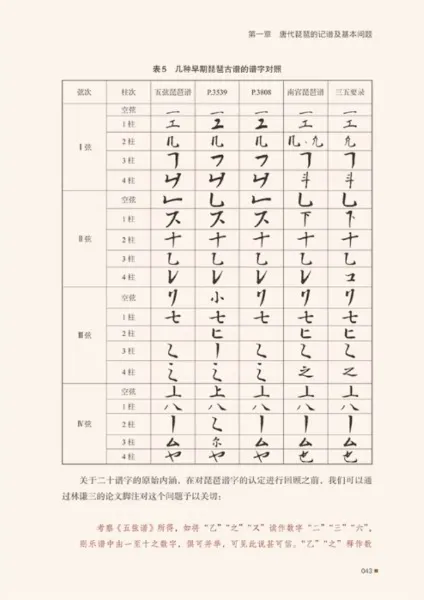 第一章 唐代琵琶的记谱及基本问题
表5 几种早期琵琶古谱的谱字对照
弦次 柱次 五弦琵琶谱 P.3539 P.3808 南宫琵琶谱 三五要录
Ⅰ弦 空弦 一 一 一 一 一
1柱 工 工 工 工 工
2柱 几 几 几 几·九 九
3柱 フ フ フ フ フ
4柱 斗 斗
Ⅱ弦 空弦 乚 乚 乚
1柱 ス ス ス 下
2柱 十 十 十 十 十
3柱 乙 乙 乙 乙 乙
4柱 レ レ レ レ コ
Ⅲ弦 空弦 ク 小 ク ク ク
1柱 七 七 七 七 七
2柱 匕 匕 匕
3柱
4柱 之 之
Ⅳ弦 空弦 上 上 上 上 上
1柱 八 八 八 八 八
2柱 丨 丨 丨 丨
3柱 ム ム ム ム
4柱 や や や 也 也
关于二十谱字的原始内涵，在对琵琶谱字的认定进行回顾之前，我们可以通
过林谦三的论文脚注对这个问题予以关切：
考察《五弦谱》所得，如将“乙”“之”“又”读作数字“二”“三”“六”，
则乐谱中由一至十之数字，俱可并举，可见此说甚可信。“乙”“之”释作数
043